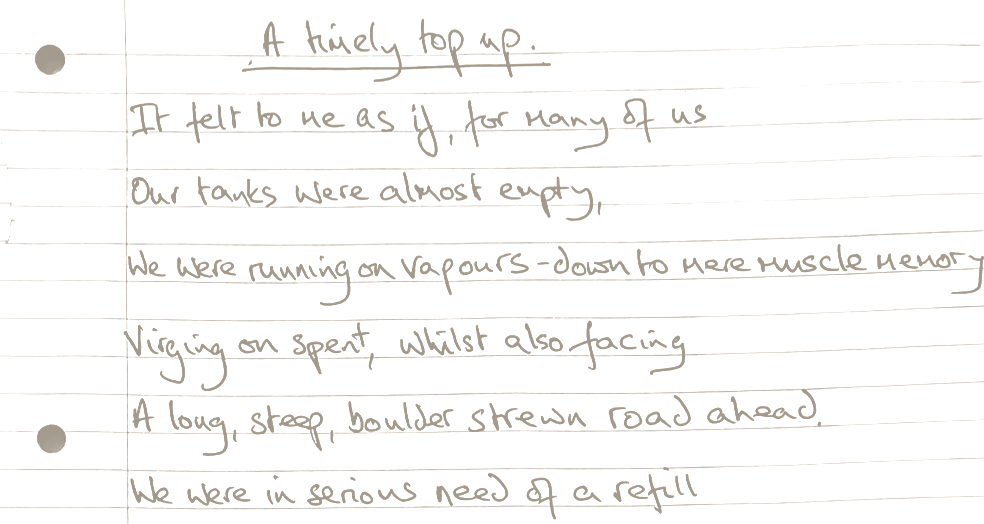 A timely top up.
It felt to me as if, for many of us
Our tanks were almost empty,
We were running on vapours - down to mere muscle memory
Virging on spent, whilst also facing
A long, steep, boulder strewn road ahead.
We were in serious need of a refill